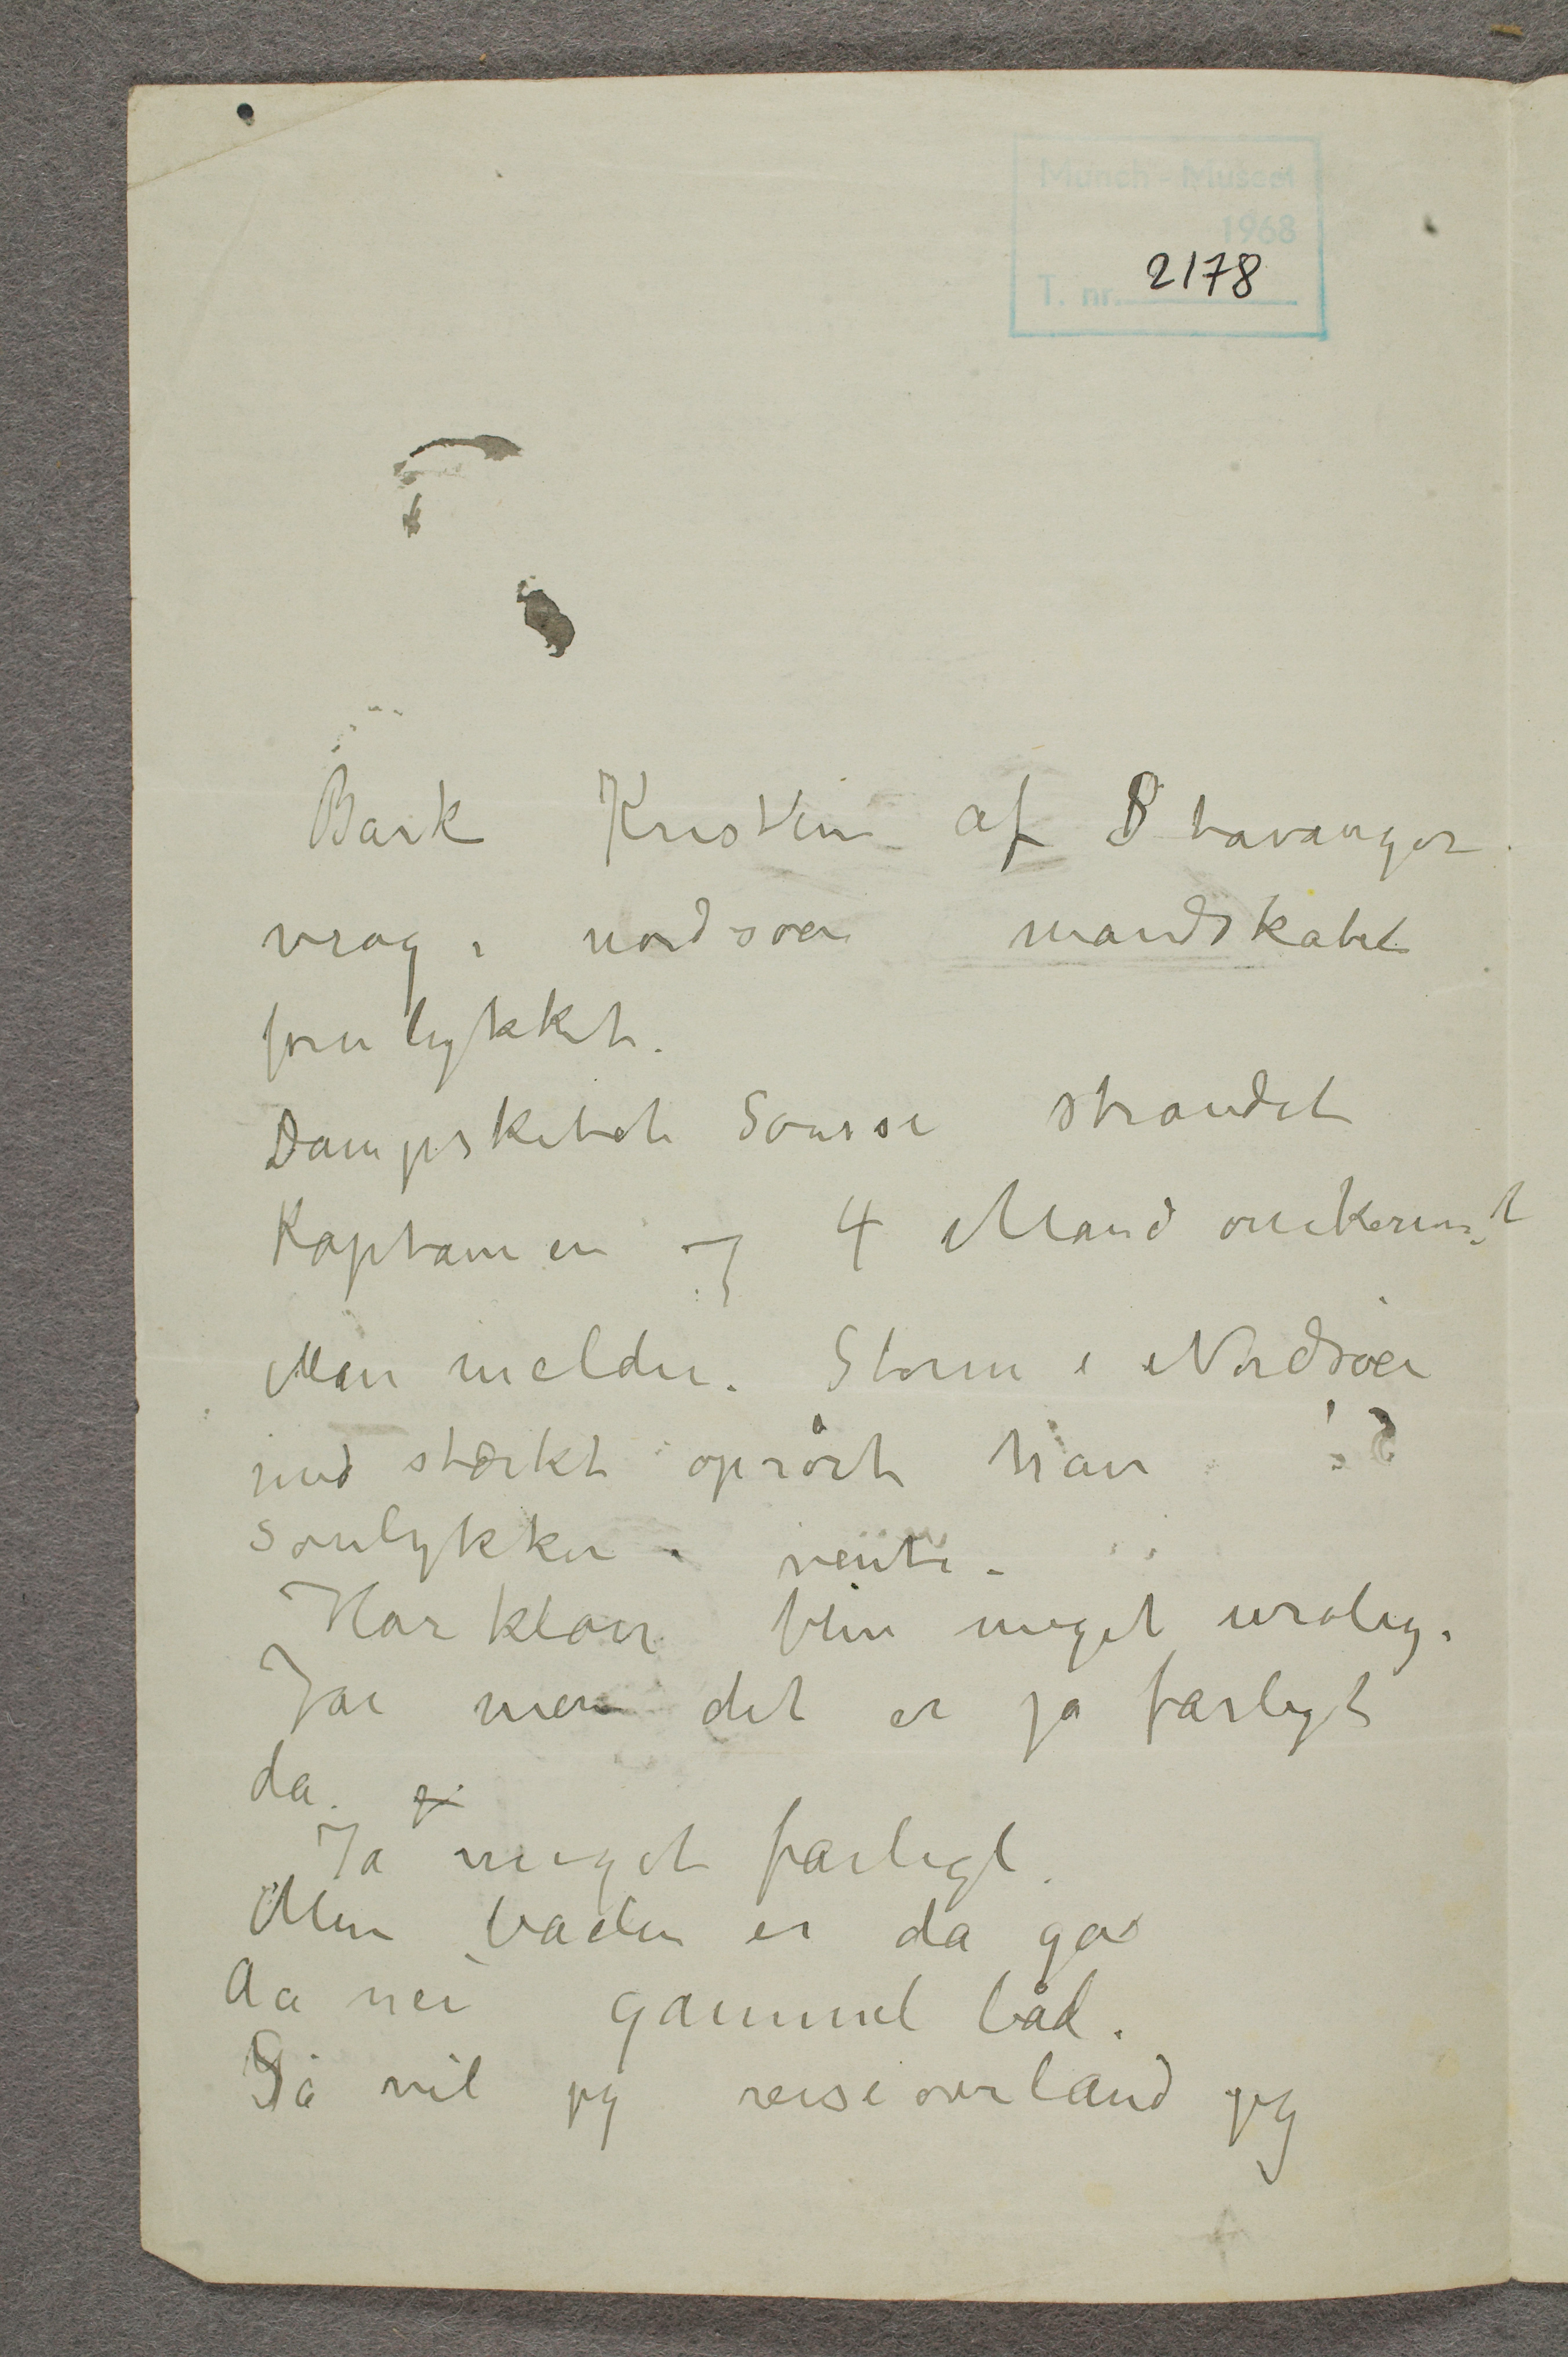 Munch-Museet
1968
T. nr. 2178
Bark Kristine af Stavanger.
vrag i nordsøen mandskabet
forulykket.
Dampskibet strandet
Kaptainen og 4 Mand omkommet
Man melder. Storm i Nordsøen
med stærkt oprørt hav
Søulykker i vente.
Har kløer blir meget urolig.
Jae men det er ja farligt
da.
Ja meget farligt.
Men baaden er da god
Aa nei gammel båd.
Så vil jeg reise over land jeg